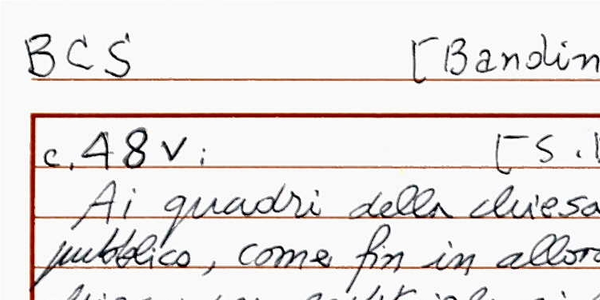 BCS [Bandin
c. 48 v: [S.
Ai quadri della chiesa
pubblico, come fin in allora